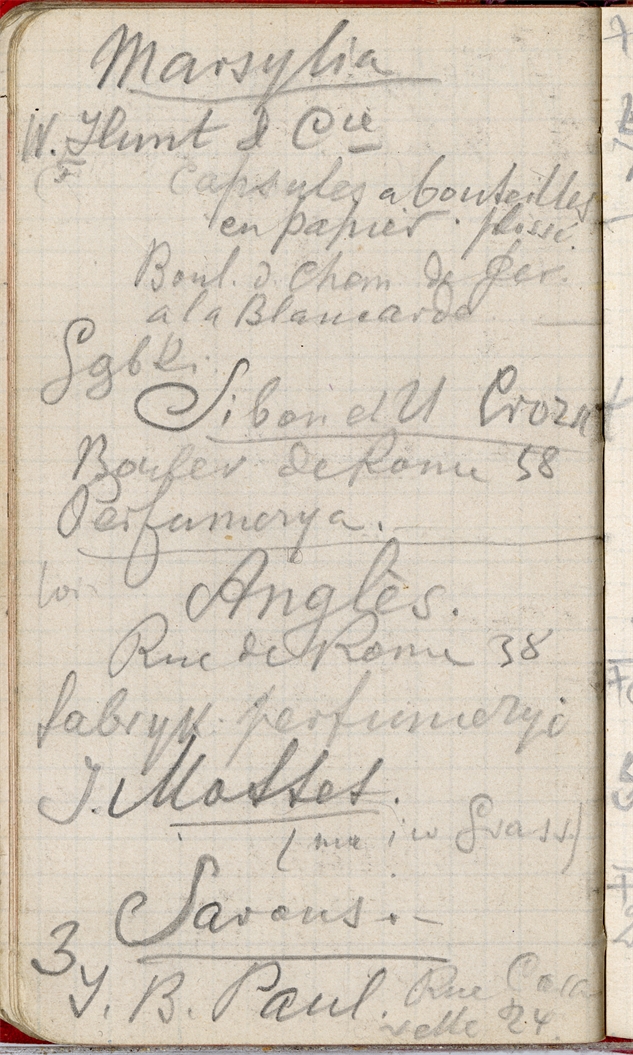 Marsylia
W. Hunt & Cie
Capsules a bouteilles
en papier. plissé.
Boul. d Chem de fer.
a la Blancarde
Gąbki.
Sibon et U Crozet
Boulev de Rome 58
Perfumerya.
Anglès.
Rue de Rome 38
fabryk perfumeryi
J. Mottet.
(ma i w Grass)
Savons.-
3
J. B. Paul. Rue
24